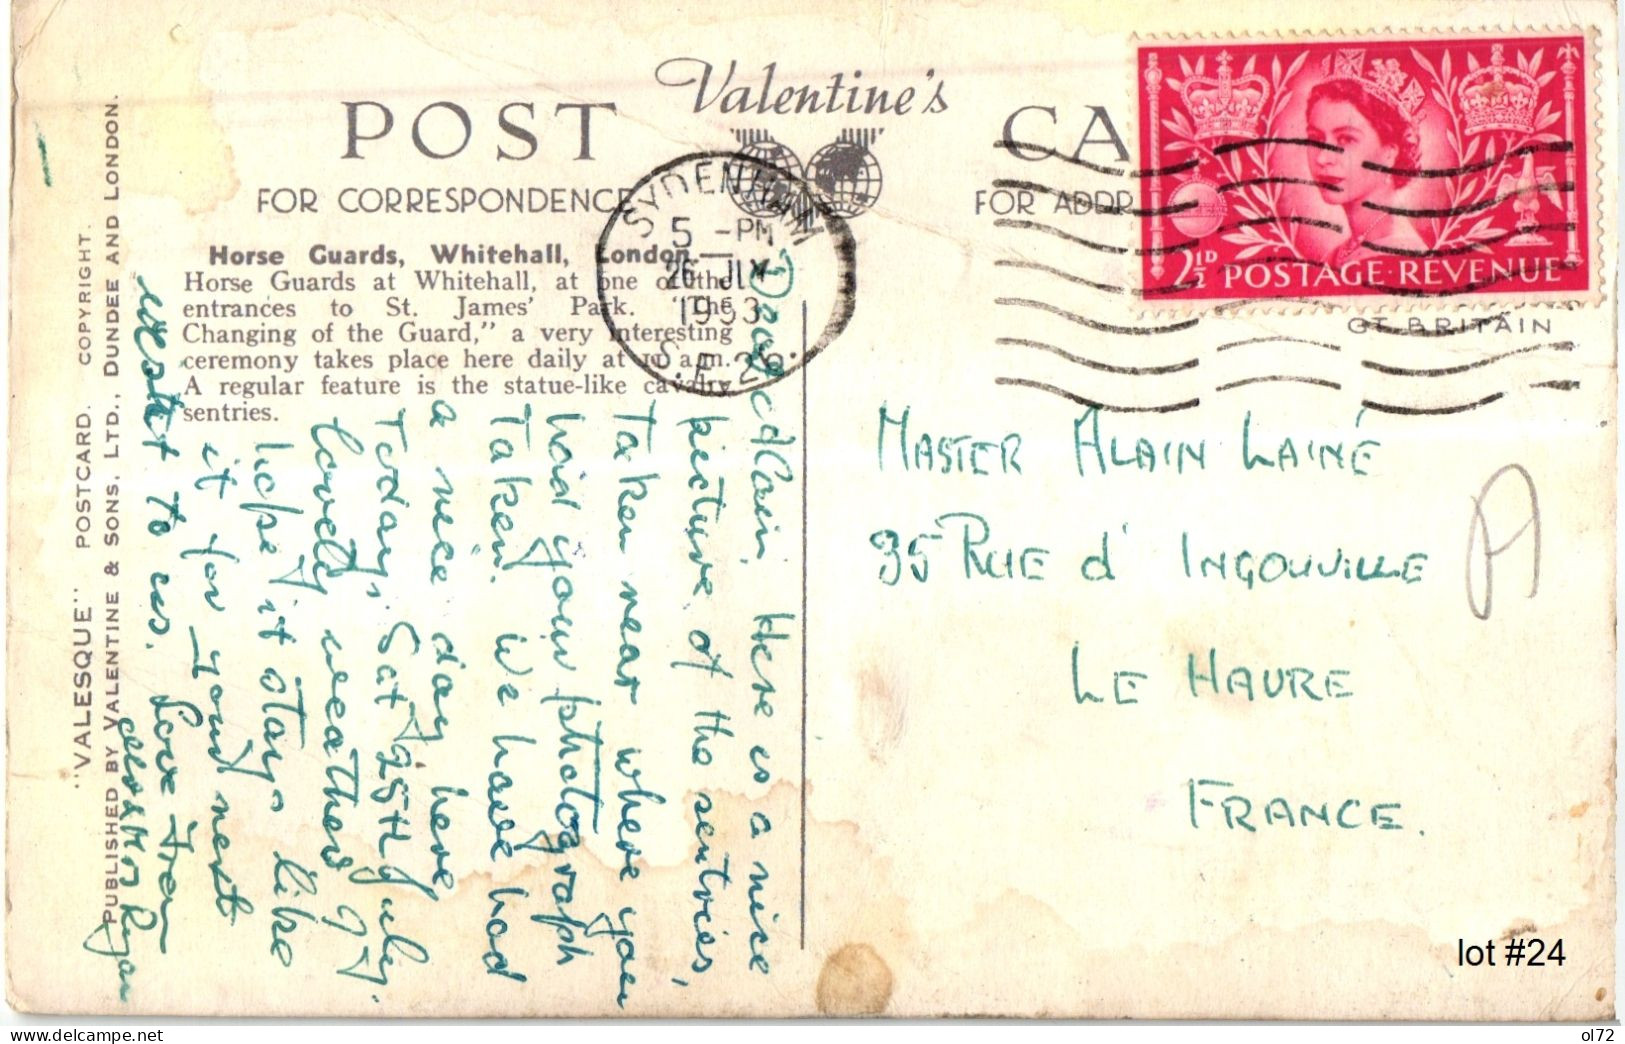 Valentine's
POST CA
FOR CORRESPONDENCE
FOR ADDR
GT BRITAIN
Horse Guards, Whitehall, London.
Horse Guards at Whitehall, at one of the
entrances to St. James' Park. "The
Changing of the Guard," a very interesting
ceremony takes place here daily at 10 a.m.
A regular feature is the statue-like cavalry
sentries.
"VALESQUE" POSTCARD. COPYRIGHT.
PUBLISHED BY VALENTINE & SONS, LTD., DUNDEE AND LONDON.
SYDENHAM
5 - PM
26 JLY
1953
S.E.26
2½D POSTAGE·REVENUE
Dear Alain, Here is a nice
picture of the sentries,
Taken near where you
had your photograph
Taken. We have had
a nice day here
Today, Sat 25th July.
lovely weather
hope it stays like
it for your next
visit to us. Love from
Mrs & Mr Ryan
MASTER ALAIN LAINÉ
35 RUE d' INGOUVILLE
LE HAVRE
FRANCE.
lot #24
ol72